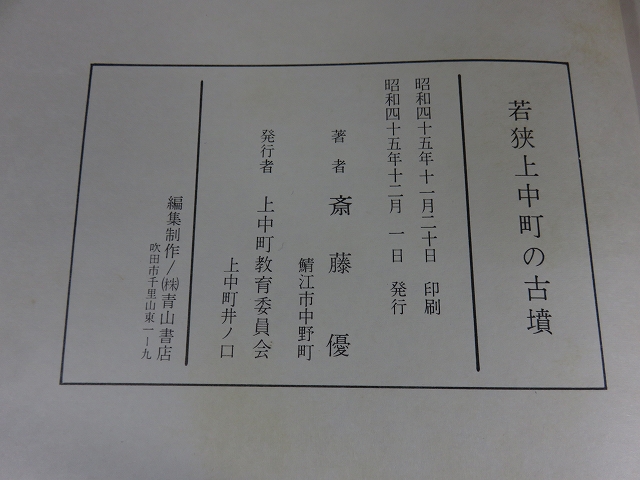 若狭上中町の古墳
昭和四十五年十一月二十日　印刷
昭和四十五年十二月　一日　発行
著者　斎藤　優
鯖江市中野町
発行者　上中町教育委員会
上中町井ノ口
編集制作/㈱青山書店
吹田市千里山東一ー九